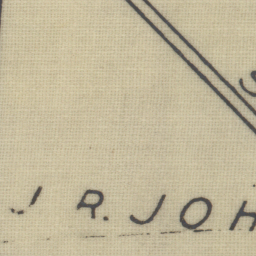 J R. JOH